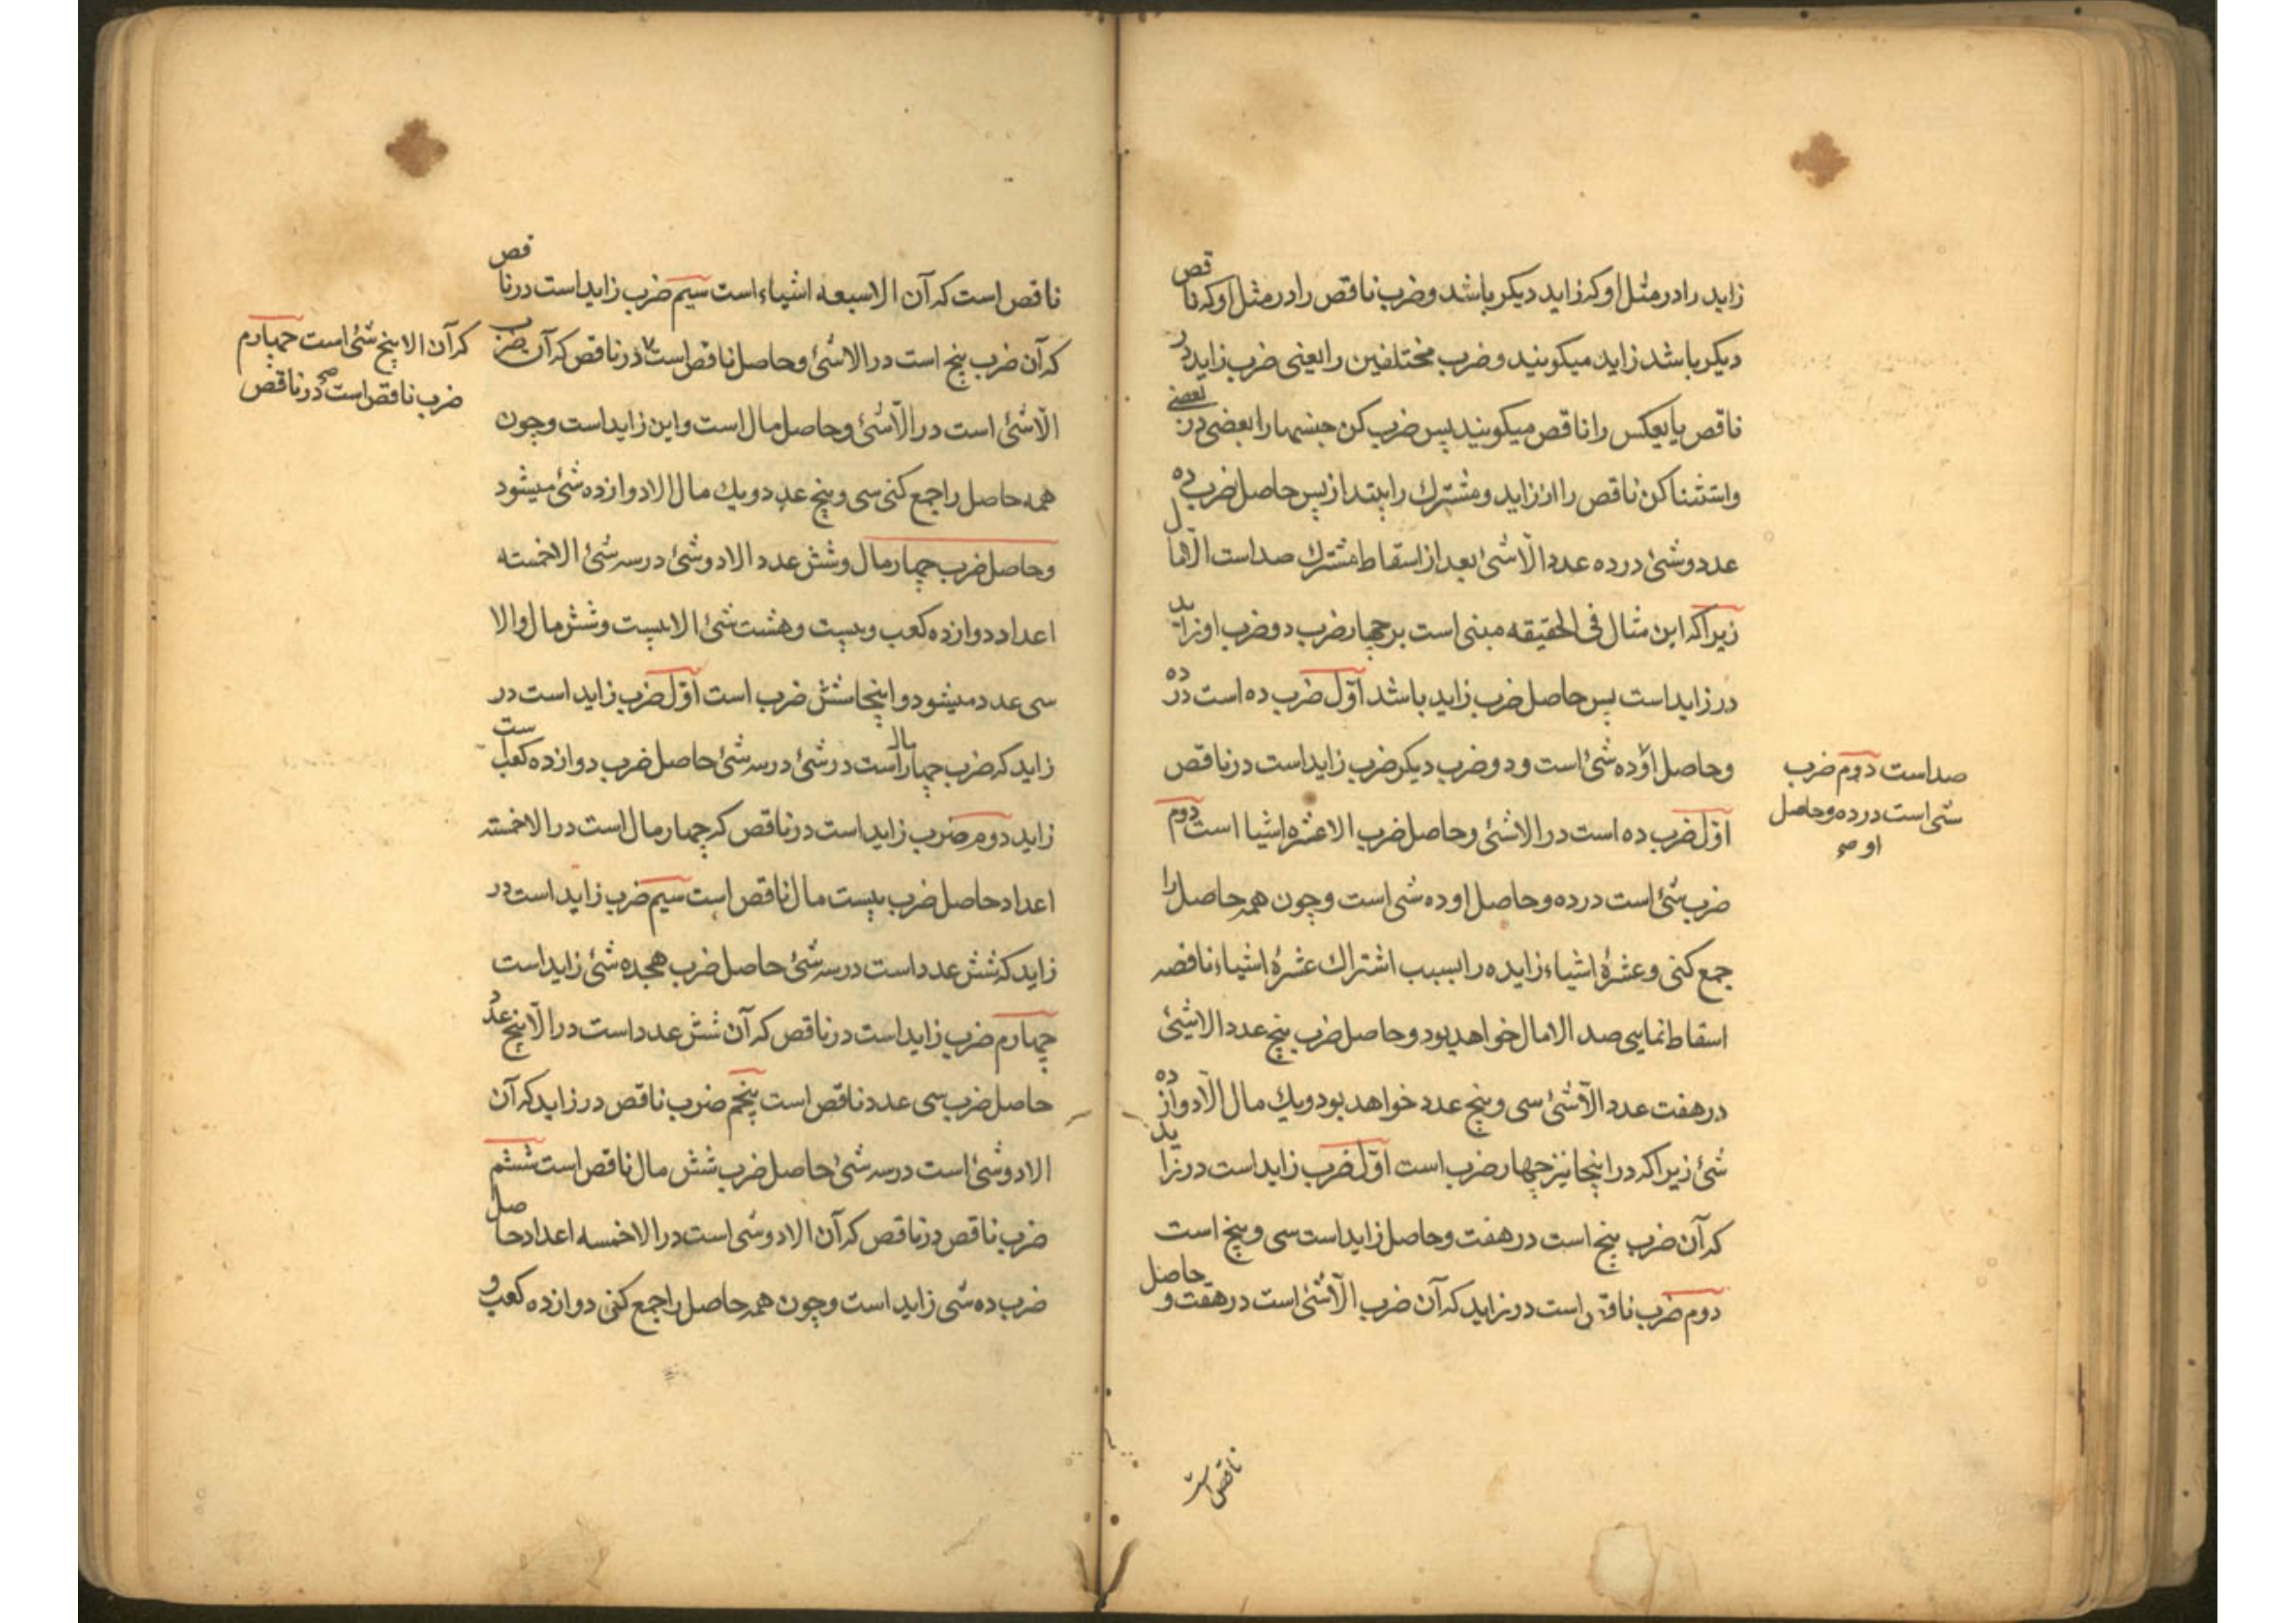 زاید را در مثل او که زاید دیکر باشد و ضرب ناقص را در مثل او که ناقص
دیکر باشد زاید میکویند و ضرب مختلفین را یعنی ضرب زاید در
ناقص یا بعکس را ناقص میکویند پس ضرب کن جنسها را بعضی در بعضی
و استثنا کن ناقص را از زاید و مشترك را بینداز پس حاصل ضرب ده
عدد و شئ در ده عدد الّا شئ بعد از اسقاط مشترك صد است الّا مال
زیرا که این مثال فی الحقیقه مبنی است بر چهار ضرب دو ضرب او زاید
در زاید است پس حاصل ضرب زاید باشد اوّل ضرب ده است در ده
و حاصل او ده شئ است و دو ضرب دیکر ضرب زاید است در ناقص
صد است دوم ضرب
شی است در ده و حاصل
او صح
اوّل ضرب ده است در الا شئ و حاصل ضرب الا عشره اشیا است دوم
ضرب شئ است در ده و حاصل او ده شی است و چون همه حاصل را
جمع کنی و عشرهٔ اشیاء زایده را بسبب اشتراك عشرهٔ اشیاء ناقصه
اسقاط نمایی صد الا مال خواهد بود و حاصل ضرب پنج عدد الا شئ
در هفت عدد الّا شئ سی و پنج عدد خواهد بود و یك مال الّا دوازده
شئ زیرا که در اینجا نیز چهار ضرب است اوّل ضرب زاید است در زاید
که آن ضرب پنج است در هفت و حاصل زاید است سی و پنج است
دوم ضرب ناقص است در زاید که آن ضرب الّا شئ است در هفت و حاصل
ناقص است
ناقص است که آن الا سبعه اشیاء است سیم ضرب زاید است در ناقص
که آن ضرب پنج است در الا شئ و حاصل ناقص است در ناقص که آن ضرب
که آن الا پنج شئ است چهارم
ضرب ناقص است صح در ناقص
الّا شئ است در الّا شئ و حاصل مال است و این زاید است و چون
همه حاصل را جمع کنی سی و پنج عدد و یك مال الا دوازده شئ میشود
و حاصل ضرب چهار مال و شش عدد الا دو شئ در سه شئ الا خمسته
اعداد دوازده کعب و بیست و هشت شئ الا بیست و شش مال و الا
سی عدد میشود و اینجا شش ضرب است اوّل ضرب زاید است در
زاید که ضرب چهار مال است در شئ در سه شئ حاصل ضرب دوازده کعب است
زاید دوم ضرب زاید است در ناقص که چهار مال است در الا خمسته
اعداد حاصل ضرب بیست مال ناقص است سیم ضرب زاید است در
زاید که شش عدد است در سه شئ حاصل ضرب هجده شئ زاید است
چهارم ضرب زاید است در ناقص که آن شش عدد است در الّا پنج عدد
حاصل ضرب سی عدد ناقص است پنجم ضرب ناقص در زاید که آن
الا دو شئ است در سه شئ حاصل ضرب شش مال ناقص است ششم
ضرب ناقص در ناقص که آن الا دو شی است در الا خمسه اعداد حاصل
ضرب ده شی زاید است و چون همه حاصل را جمع کنی دوازده کعب و